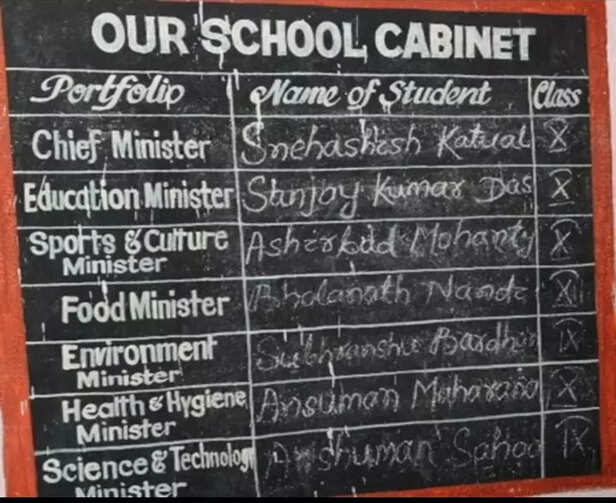 OUR SCHOOL CABINET
Portfolio Name of Student Class
Chief Minister Snehashish Katual X
Education Minister Sanjay Kumar Das X
Sports & Culture Minister Ashirbad Mohanty X
Food Minister Bholanath Nanda
Environment Minister Subhranshu Bardhan IX
Health & Hygiene Minister Ansuman Maharana X
Science & Technology Minister Anshuman Sahoo IX